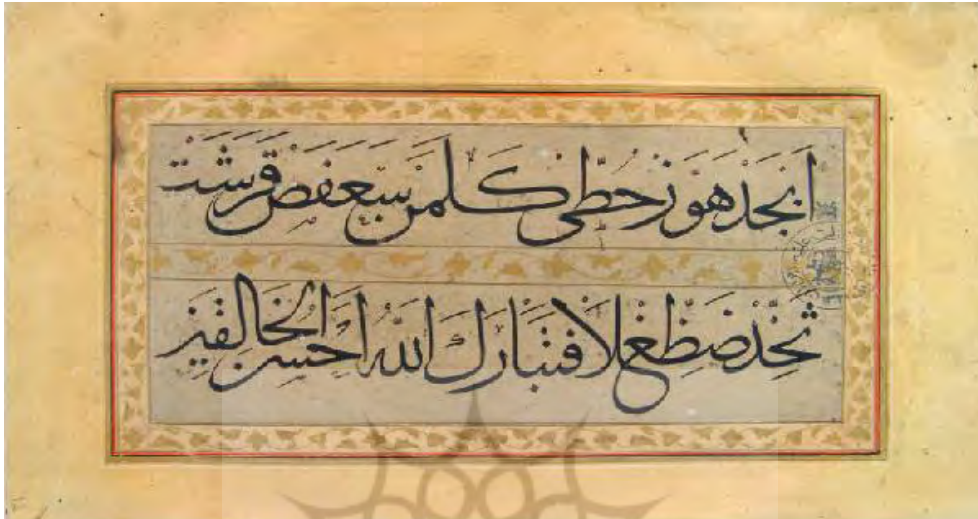 اَبْجَدْ هَوَّزْ حُطِّي كَلَمَنْ سَعْفَصْ قَرَشَتْ
ثَخَّذْ ضَظَّغْ لا فَتَبَارَكَ اللهُ اَحْسَنُ الْخَالِقِينَ